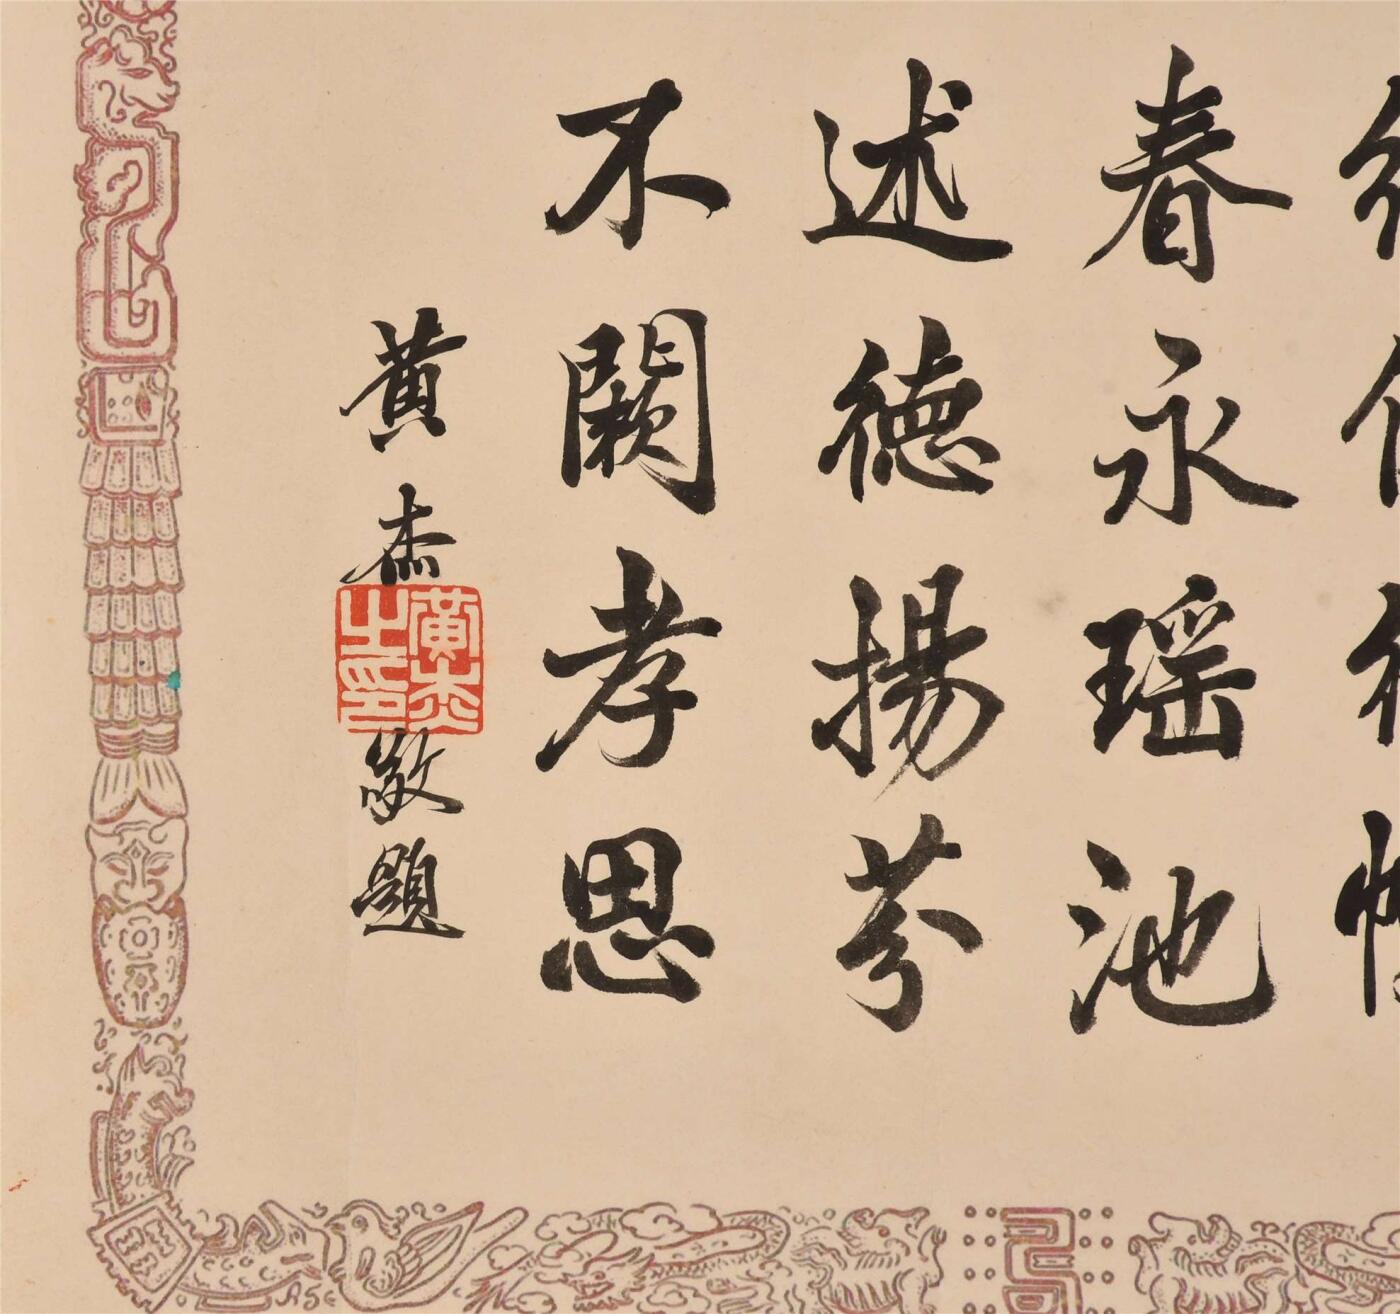 春永瑶池
述德揚芬
不闕孝思
黄杰敬題
黄杰之印